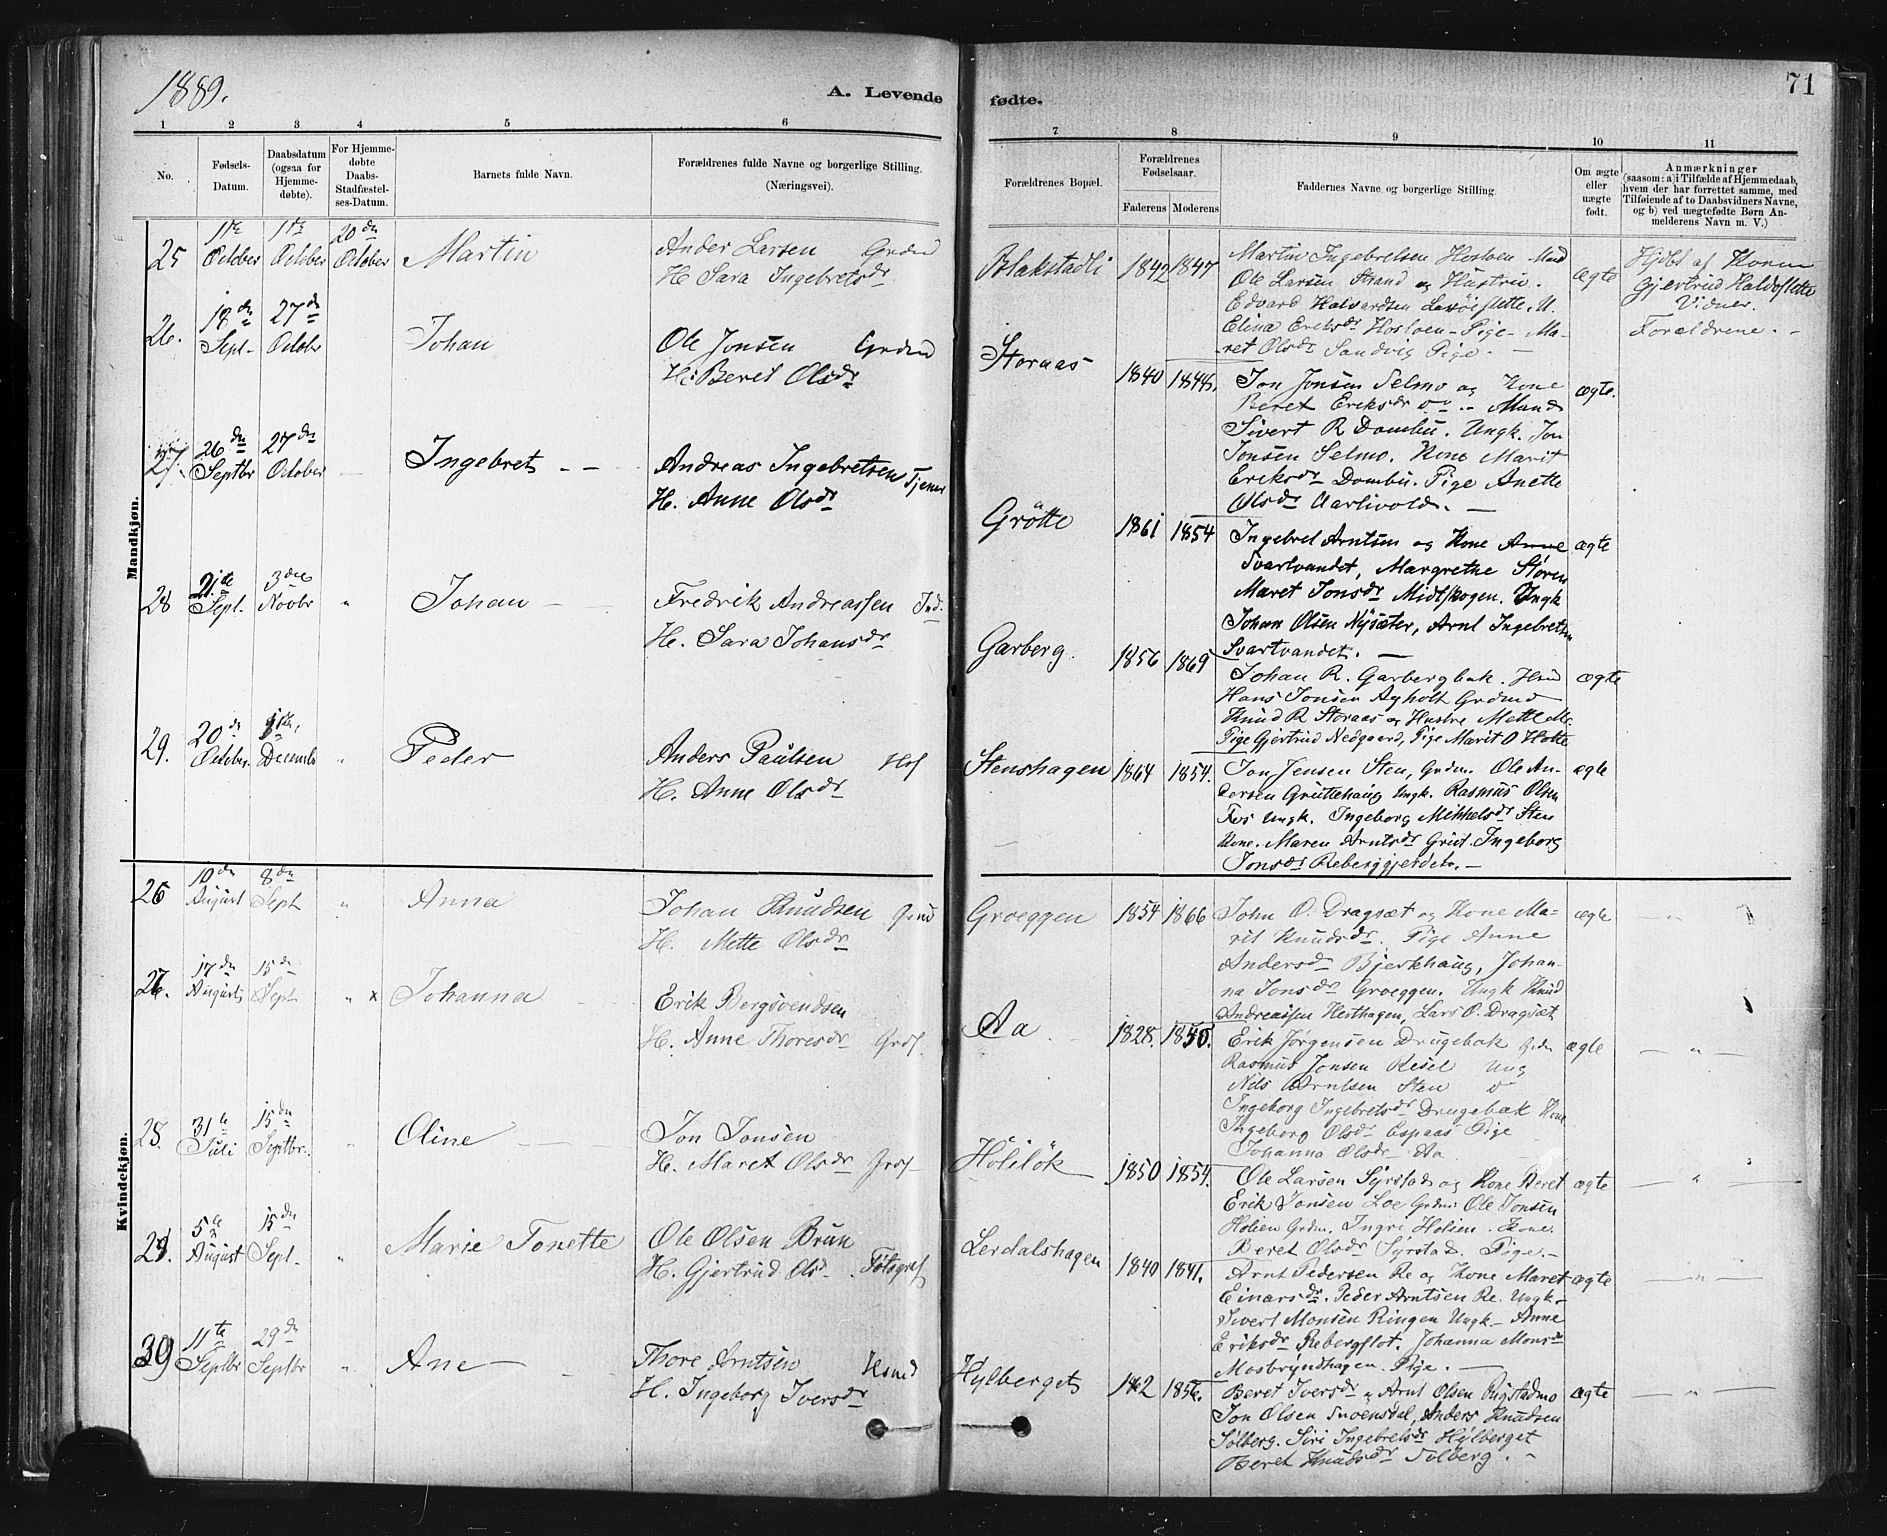 1889.
A. Levende
fødte.
71
1 2 3 4 5 6
7 8 9 10 11
No.
Fødsels-
Datum.
Daabsdatum
(ogsaa for
Hjemme-
døbte).
For Hjemme-
døbte
Daabs-
Stadfæstel-
ses-Datum.
Barnets fulde Navn.
Forældrenes fulde Navne og borgerlige Stilling.
(Næringsvei).
Forældrenes Bopæl.
Forældrenes
Fødselsaar.
Faderens Moderens
Faddernes Navne og borgerlige Stilling.
Om ægte
eller
uægte
født.
Anmærkninger
(saasom: a) i Tilfælde af Hjemmedaab,
hvem der har forrettet samme, med
Tilføiende af to Daabsvidners Navne,
og b) ved uægtefødte Børn An-
melderens Navn m. V.)
Mandkjøn.
25 11te October 11te October 20de October Martin
Ander Larsen Grdmd
H Sara Ingebretsdr
Blakstadli 1842 1847
Martin Ingebretsen Hostoen Mand
Ole Larsen Strand og Hustru.
Edvard Halvardsen
Elina Eriksdr Hostoen Pige Ma-
ret Olsdr Sandvig Pige.
ægte
Hjdbt af Konen
Gjertrud Haldoslette
Vidner
Forældrene.
26. 18de Sept. 27de Octobr Johan
Ole Jonsen Grdmd
H: Beret Olsdr
Storaas 1840 1844
Jon Jonsen Selmo og Kone
Beret Eriksdr Mand
Sivert R Dombu. Ungk. Jon
Jonsen Selmo. Kone Marit
Eriksdr Dombu. Pige Anette
Olsdr Aarlivold.
ægte.
27. 26de Septbr 27de October Ingebret
Andreas Ingebretsen Tjener
H. Anne Olsdr
Grötte 1861 1854
Ingebret Arntsen og Kone Anne
Svartvandet, Margrethe Støren
Maret Jonsdr Midtskogen. Ungk
Johan Olsen Nysæter, Arnt Ingebretsen
Svartvandet.
ægte
28 21de Sept. 3die Novbr " Johan
Fredrik Andreassen Ind.
H. Sara Johansdr
Garberg. 1856 1869
Johan R. Garbergbak.
Hans Jonsen Agholt Grdmd
Knud R Storaas og Hustru Mette
Pige Gjertrud Nedgaard, Pige Marit O Holte
ægte
29. 20de October Decembr " Peder
Anders Paulsen
H. Anne Olsdr
Stenshagen 1864 1854.
Jon Jensen Sten, Grdm. Ole An-
dersen Gruttehaug Ungk. Rasmus Olsen
Fos Ungk. Ingeborg Mikkelsdr Sten
Kone. Maren Arntsdr Ingeborg
Jonsdr Reberggjerdet.
ægte
Kvindekjøn.
26 10de August 8de Sept " Anna
Johan Knudsen Grmd
H. Mette Olsdr
Groeggen 1854 1866
John O. Dragsæt og Kone Ma=
rit Knudsdr. Pige Anne
Andersdr Bjerkhaug, Johan-
na Jonsdr Groeggen. Ungk Knud
Andreassen Hesthagen, Lars O. Dragsæt
ægte
27. 17de Augusts 15de Sept " x Johanna
Erik Bergsvendsen
H. Anne Thoresdr
Aa 1828. 1850.
Erik Jørgensen Drugebak
Rasmus Jonsen Resel Ung
Nils Arntsen Sten
Ingeborg Ingebretsdr Drugebak Kone
Ingeborg Olsdr Espaas Pige
Johanna Olsdr Aa
ægte — " —
28. 31te Juli 15de Septbr. Oline
Jon Jonsen
H. Maret Olsdr
Holilök 1850 1854.
Ole Larsen Syrstad og Kone Beret
Erik Jonsen Loe Grdm. Ole Jonsen
Holien Grdm. Ingri Holien. Kone.
Beret Olsdr Syrstad. Pige.
ægte — " —
29. 5te August 15de Sept. " Marie Tonette
Ole Olsen Brun
H. Gjertrud Olsd. Fotograf
Lerdalshagen 1840 1841.
Arnt Pedersen Re og Kone Maret
Einarsdr. Peder Arntsen Re. Ungk
Sivert Monsen Ringen Ungk. Anne
Eriksdr Rebergflot. Johanna Monsdr
Mosbryndhagen Pige.
ægte — " —
30 11te Septbr 29de Septbr " Ane
Thore Arntsen Hsmd
H. Ingeborg Iversdr
Hylberget 1856.
Beret Iversdr, Arnt Olsen
Jon Olsen Anders Knudsen
Solberg. Siri Ingebretsdr Hylberget
Beret Knudsdr Solberg.
ægte — " —